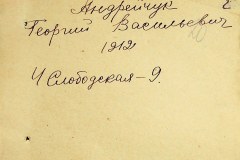 Андрейчук
Георгий Васильевич
1912
4 Слободская-9.